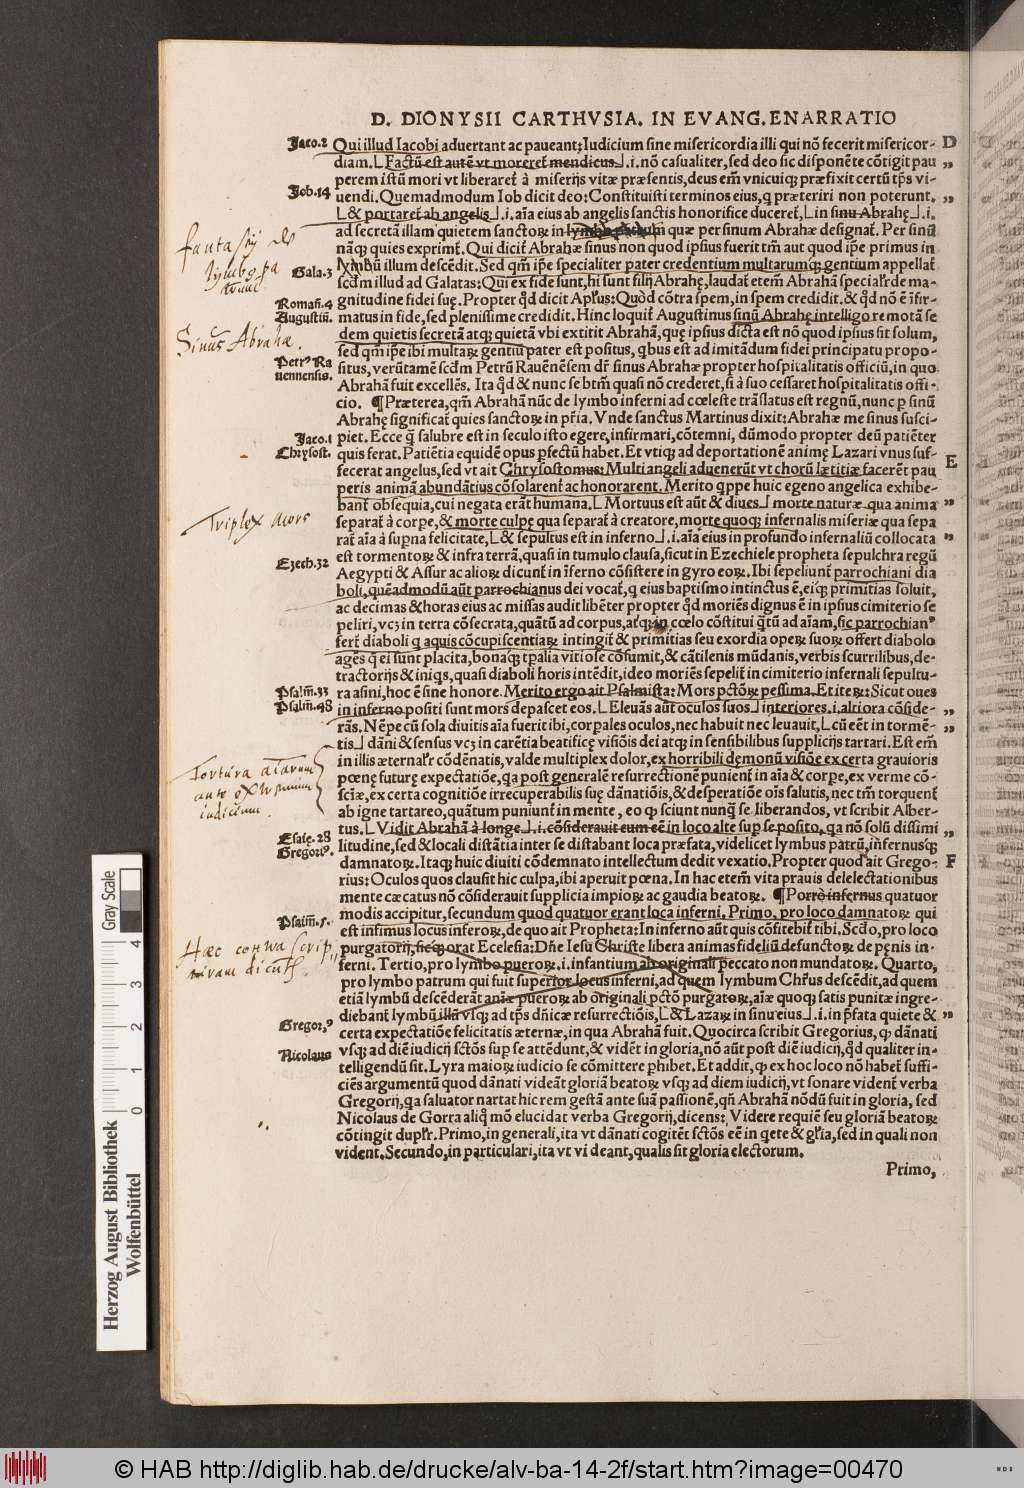 D. DIONYSII CARTHVSIA. IN EVANG. ENARRATIO
Jaco.2 Qui illud Iacobi aduertant ac paueant: Iudicium sine misericordia illi qui nõ fecerit misericor- D
diam. ⌊Factũ est autẽ vt moreret᷑ mendicus⌋.i. nõ casualiter, sed deo sic disponẽte cõtigit pau „
perem istũ mori vt liberaret᷑ à miserijs vitæ præsentis, deus em̃ vnicuiq; præfixit certũ tp̃s vi-
Job.14 uendi. Quemadmodum Iob dicit deo: Constituisti terminos eius, q præteriri non poterunt. „
⌊& portaret᷑ ab angelis⌋.i. aĩa eius ab angelis sanctis honorifice duceret᷑, ⌊in sinu Abrahę⌋.i.
ad secretã illam quietem sanctoꝝ in lymbo patrum quæ per sinum Abrahæ designat᷑. Per sinũ
fantasij de
lymbo pa
trum
nãq; quies exprimt᷑. Qui dicit᷑ Abrahæ sinus non quod ipsius fuerit tm̃ aut quod ip̃e primus in
Gala.3 lymbũ illum descẽdit. Sed qm̃ ip̃e specialiter pater credentium multarumq; gentium appellat᷑
scd̃m illud ad Galatas: Qui ex fide sunt, hi sunt filij Abrahę, laudat᷑ etem̃ Abrahã specialr̃ de ma-
Roman̄.4 gnitudine fidei suę. Propter qd̃ dicit Apl̃us: Quòd cõtra spem, in spem credidit. & qd̃ nõ ẽ ĩfir-
Augustin̄. matus in fide, sed plenissime credidit. Hinc loquit᷑ Augustinus sinũ Abrahę intelligo remotã se
Sinus Abrahæ.
dem quietis secretã atq; quietã vbi extitit Abrahã, quę ipsius dicta est nõ quod ipsius sit solum,
sed qm̃ ip̃e ibi multaꝝ gentiũ pater est positus, qbus est ad imitãdum fidei principatu propo-
Petrꝰ Ra
uennensis. situs, verũtamẽ scd̃m Petrũ Rauẽnẽsem dr̃ sinus Abrahæ propter hospitalitatis officiũ, in quo
Abrahã fuit excellẽs. Ita qd̃ & nunc se btm̃ quasi nõ crederet, si à suo cessaret hospitalitatis offi-
cio. ¶Præterea, qm̃ Abrahã nũc de lymbo inferni ad cœleste trãslatus est regnũ, nunc p sinũ
Abrahę significat᷑ quies sanctoꝝ in pr̃ia. Vnde sanctus Martinus dixit: Abrahæ me sinus susci-
Jaco.1 piet. Ecce q̃ salubre est in seculo isto egere, infirmari, cõtemni, dũmodo propter deũ patiẽter
Chrysost. quis ferat. Patiẽtia equidẽ opus pfectũ habet. Et vtiq; ad deportationẽ animę Lazari vnus suf- E
fecerat angelus, sed vt ait Chrysostomus: Multi angeli aduenerũt vt chorũ lætitiæ facerẽt pau
peris animã abundãtius cõsolarent᷑ ac honorarent. Merito qppe huic egeno angelica exhibe-
bant᷑ obsequia, cui negata erãt humana. ⌊Mortuus est aũt & diues⌋ morte naturæ qua anima „
Triplex mors
separat᷑ à corpe, & morte culpę qua separat᷑ à creatore, morte quoq; infernalis miseriæ qua sepa
rat᷑ aĩa à supna felicitate, ⌊& sepultus est in inferno⌋.i. aĩa eius in profundo infernaliũ collocata „
Ezech.32 est tormentoꝝ & infra terrã, quasi in tumulo clausa, sicut in Ezechiele propheta sepulchra regũ
Aegypti & Assur ac alioꝝ dicunt᷑ in ĩferno cõsistere in gyro eoꝝ. Ibi sepeliunt᷑ parrochiani dia
boli, quẽadmodũ aũt parrochianus dei vocat᷑, q eius baptismo intinctus ẽ, eiq; primitias soluit,
ac decimas & horas eius ac missas audit libẽter propter qd̃ moriẽs dignus ẽ in ipsius cimiterio se
peliri, vcꝫ in terra cõsecrata, quãtũ ad corpus, atq; in cœlo cõstitui q̃tũ ad aĩam, sic parrochianꝰ
fert᷑ diaboli q aquis cõcupiscentiaꝝ intingit᷑ & primitias seu exordia opeꝝ suoꝝ offert diabolo
agẽs q̃ ei sunt placita, bonaq; tp̃alia vitiose cõsumit, & cãtilenis mũdanis, verbis scurrilibus, de-
tractorijs & iniqs, quasi diaboli horis intẽdit, ideo moriẽs sepelit᷑ in cimiterio infernali sepultu-
Psalm̄.33 ra asini, hoc ẽ sine honore. Merito ergo ait Psalmista: Mors pctõꝝ pessima. Et iteꝝ: Sicut oues
Psalm̄.48 in inferno positi sunt mors depascet eos. ⌊Eleuãs aũt oculos suos⌋ interiores.i. altiora cõside- „
rãs. Nẽpe cũ sola diuitis aĩa fuerit ibi, corpales oculos, nec habuit nec leuauit, ⌊cũ eẽt in tormẽ- „
tis⌋ dãni & sensus vcꝫ in carẽtia beatificę visiõis dei atq; in sensibilibus supplicijs tartari. Est em̃
Tortura aĩarum
ante extremum
iudicium.
in illis æternalr̃ cõdẽnatis, valde multiplex dolor, ex horribili dęmonũ visiõe ex certa grauioris
pœnę futurę expectatiõe, qa post generalẽ resurrectionẽ punient᷑ in aĩa & corpe, ex verme cõ-
sciæ, ex certa cognitiõe irrecuperabilis suę dãnatiõis, & desperatiõe oĩs salutis, nec tm̃ torquent᷑
ab igne tartareo, quãtum puniunt᷑ in mente, eo ꝙ sciunt nunq̃ se liberandos, vt scribit Alber-
tus. ⌊Vidit Abrahã à longe⌋.i. cõsiderauit eum eẽ in loco alte sup se posito, qa nõ solũ dissimi „
Esaię.28 litudine, sed & locali distãtia inter se distabant loca præfata, videlicet lymbus patrũ, infernusq;
Gregoriꝰ. damnatoꝝ. Itaq; huic diuiti cõdemnato intellectum dedit vexatio. Propter quod ait Grego- F
rius: Oculos quos clausit hic culpa, ibi aperuit pœna. In hac etem̃ vita prauis delelectationibus
mente cæcatus nõ cõsiderauit supplicia impioꝝ ac gaudia beatoꝝ. ¶Porrò infernus quatuor
modis accipitur, secundum quod quatuor erant loca inferni. Primo, pro loco damnatoꝝ qui
Psalm̄.5. est infimus locus inferoꝝ, de quo ait Propheta: In inferno aũt quis cõfitebit᷑ tibi. Scd̃o, pro loco
Hæc contra scrip
turam dicunt᷑
purgatorij, sicq; orat Ecclesia: Dñe Iesu Christe libera animas fideliũ defunctoꝝ de pęnis in-
ferni. Tertio, pro lymbo pueroꝝ.i. infantium ab originali peccato non mundatoꝝ. Quarto,
pro lymbo patrum qui fuit superior locus inferni, ad quem lymbum Chr̃us descẽdit, ad quem
etiã lymbũ descẽderãt animæ pueroꝝ ab originali pctõ purgatoꝝ, aĩæ quoq; satis punitæ ingre-
Gregor.ꝰ diebant᷑ lymbũ illũ vsq; ad tp̃s dñicæ resurrectiõis, ⌊& Lazaꝝ in sinu eius⌋.i. in pfata quiete & „
certa expectatiõe felicitatis æternæ, in qua Abrahã fuit. Quocirca scribit Gregorius, ꝙ dãnati
Nicolaus vsq; ad diẽ iudicij sctõs sup se attẽdunt, & vidẽt in gloria, nõ aũt post diẽ iudicij, qd̃ qualiter in-
telligendũ sit. Lyra maioꝝ iudicio se cõmittere phibet. Et addit, ꝙ ex hoc loco nõ habet᷑ suffi-
ciẽs argumentũ quod dãnati videãt gloriã beatoꝝ vsq; ad diem iudicij, vt sonare vident᷑ verba
Gregorij, qa saluator nartat hic rem gestã ante suã passionẽ, qñ Abrahã nõdũ fuit in gloria, sed
Nicolaus de Gorra aliqͦ mõ elucidat verba Gregorij, dicens: Videre requiẽ seu gloriã beatoꝝ
cõtingit duplr̃. Primo, in generali, ita vt dãnati cogitẽt sctõs eẽ in qete & gl̃ia, sed in quali non
vident. Secundo, in particulari, ita vt videant, qualis sit gloria electorum.
Primo,
Herzog August Bibliothek
Wolfenbüttel
0 1 2 3 4
Gray Scale
© HAB http://diglib.hab.de/drucke/alv-ba-14-2f/start.htm?image=00470